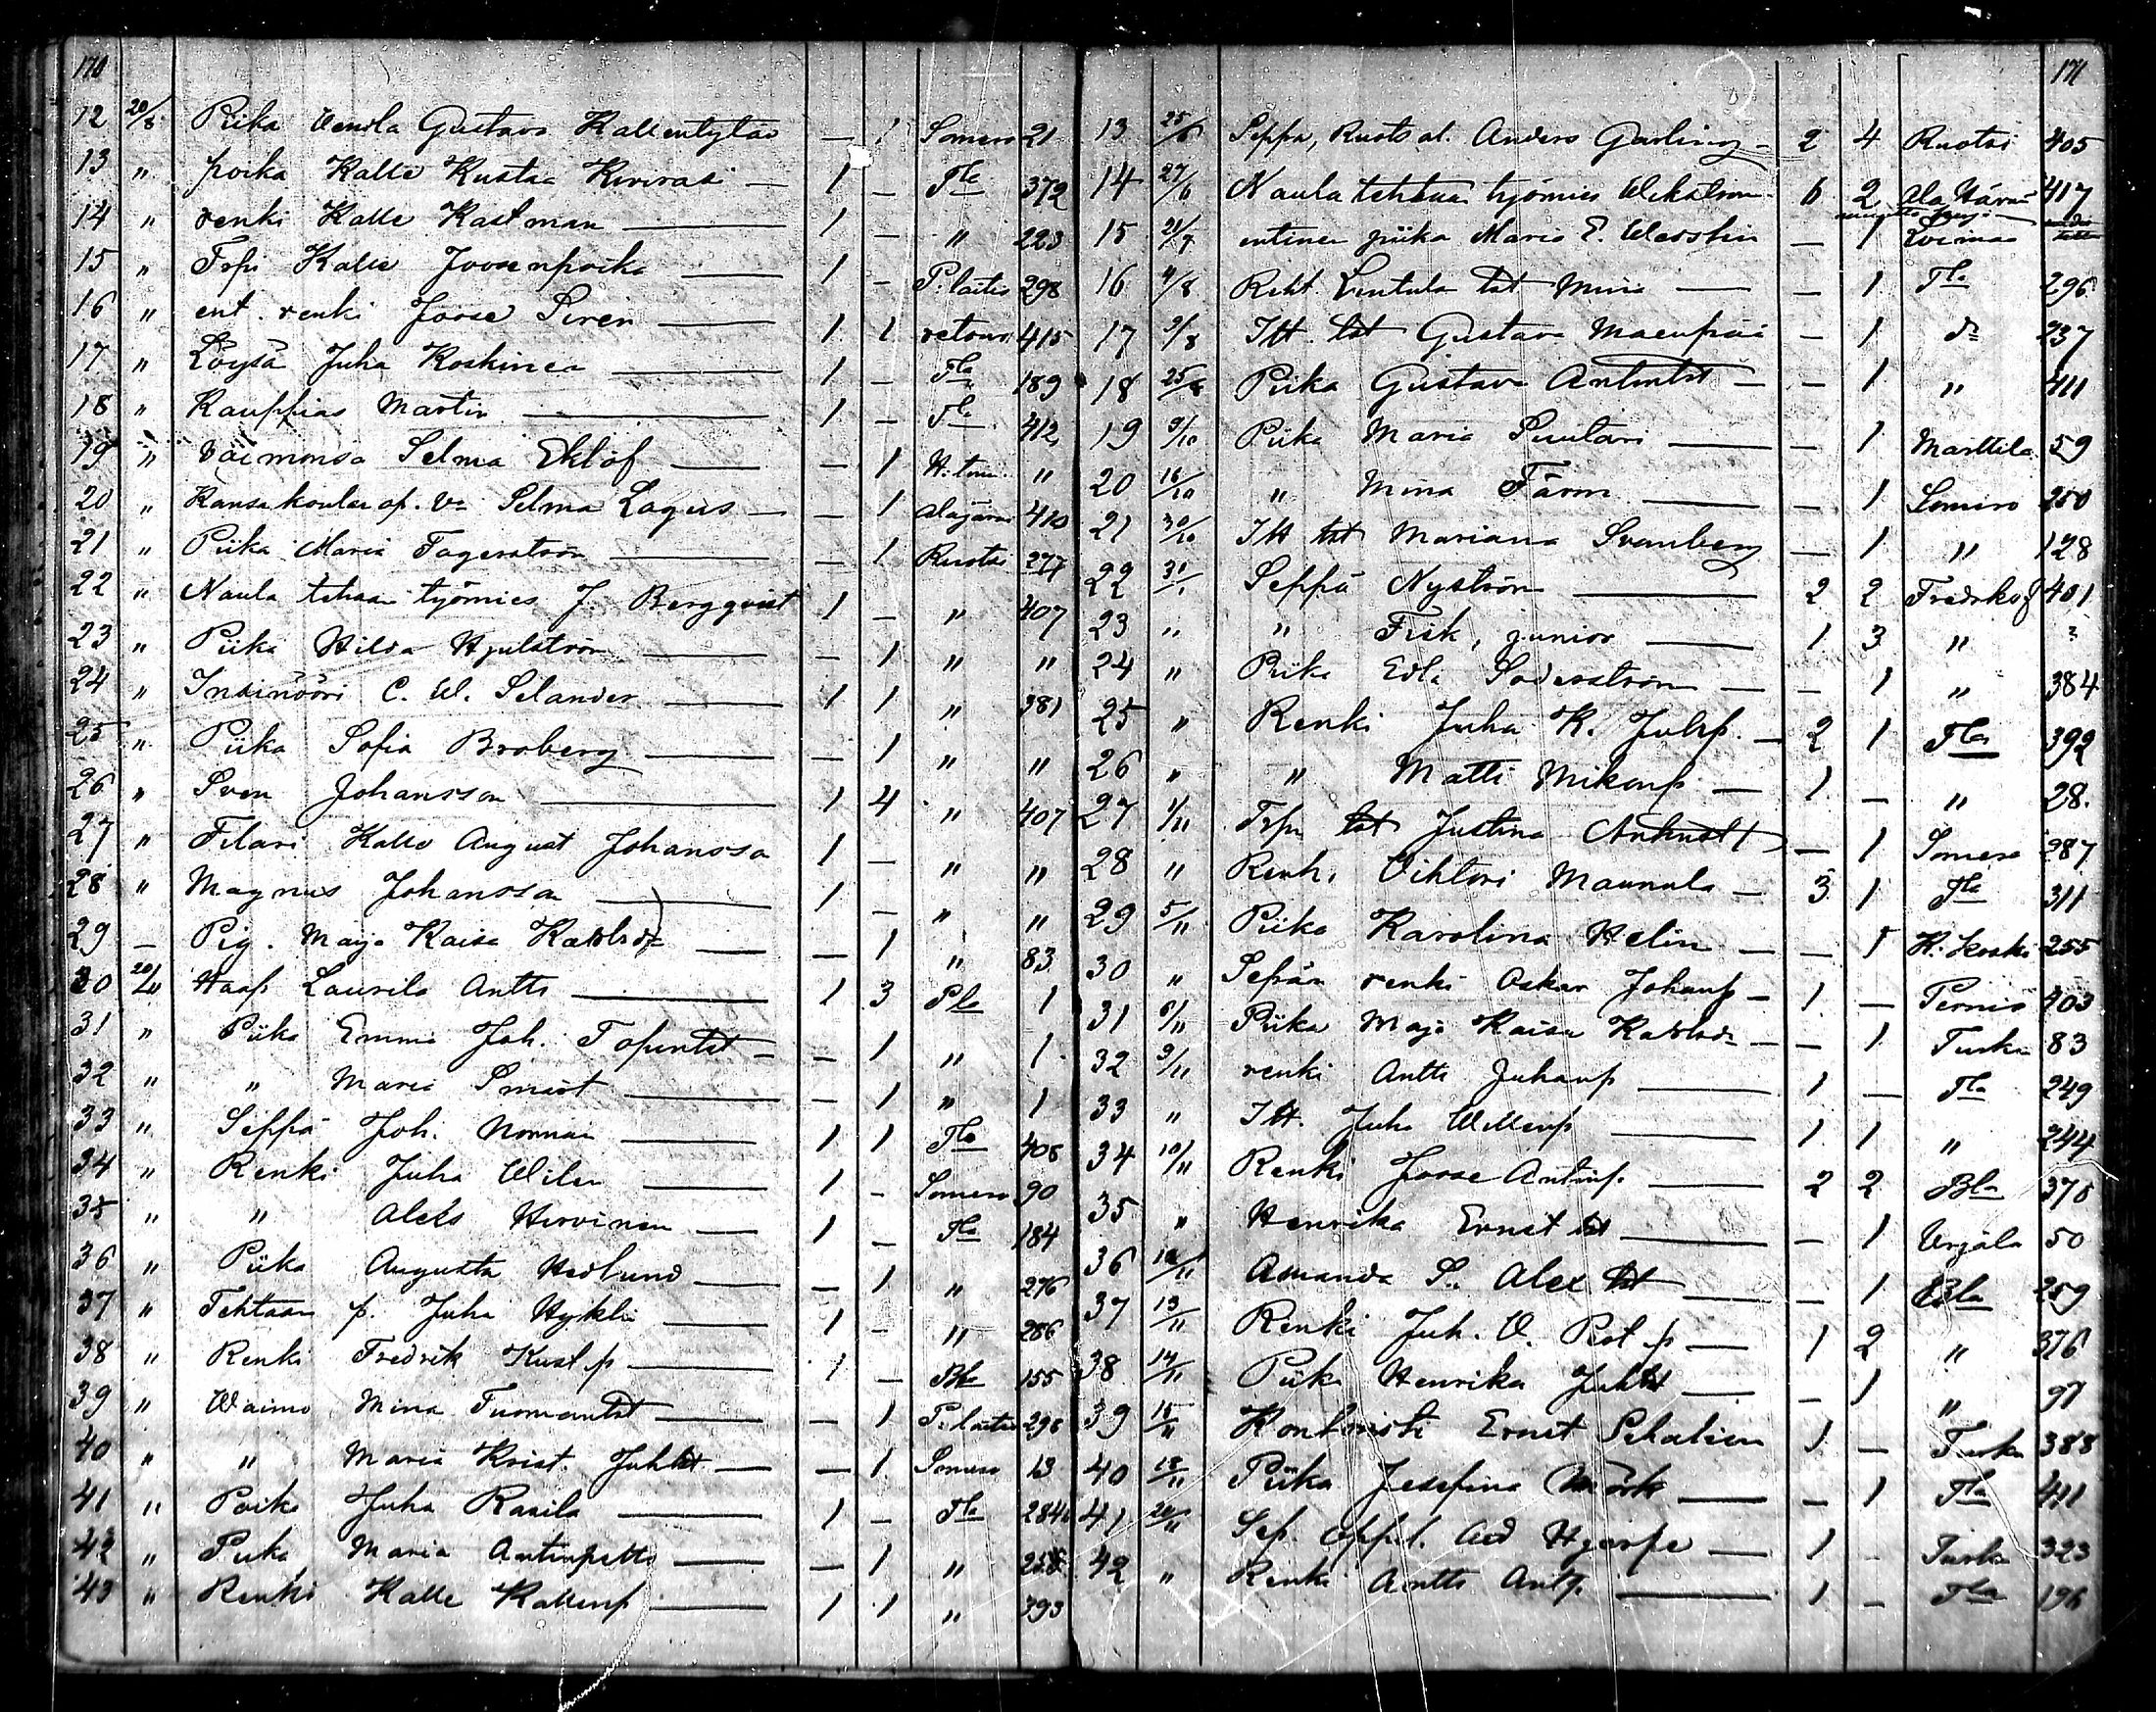 170
12 20/8 Piika Vendla Gustava Kallentytär — 1 Somero 21
13 " poika Kalle Kustaa Kivirasi — 1 — Tla 372
14 " renki Kalle Kastman — 1 — " 223
15 " Torp. Kalle Joosenpoika — 1 — P:laitio 298
16 " ent. renki Joose Siren — 1 1 retour 415
17 " Löysä Juha Koskinen — 1 — Tla 189
18 " Kauppias Martin — 1 — Tla 412
19 " Vaimonsa Selma Eklöf — — 1 "
20 " Kansakoulun op. Va Selma Lagus — — 1 Alajärvi 410
21 " Piika Maria Fagerström — — 1 Ruotsi 277
22 " Naula tehtaan työmies J. Bergqvist 1 — " 407
23 " Piika Hilda Hjulström — — 1 " "
24 " Insinööri C. W. Selander — 1 1 " 381
25 " Piika Sofia Broberg — — 1 " "
26 " Sven Johansson — 1 4 " 407
27 " Filari Kalle August Johansson 1 — " "
28 " Magnus Johansson — 1 — " "
29 — Pig. Maja Kaisa Karlsdr — — 1 " 83
30 20/11 Haap Laurila Antti — 1 3 Pla 1
31 " Piika Emma Joh. Topentst — — 1 " 1
32 " " Maria Smidt — — 1 " 1
33 " Seppä Joh. Norman — 1 1 Tla 408
34 " Renki Juha Wilen — 1 — Somero 90
35 " " Aleks Hirvinen — 1 — Tla 184
36 " Piika Augusta Hedlund — — 1 " 276
37 " Tehtaan p. Juha Hykli — 1 — " 286
38 " Renki Fredrik Kust.p — 1 — Bla 155
39 " Waimo Mina Tuomantst — — 1 P:laitio 298
40 " " Maria Krist. Juhtst — — 1 Somero 13
41 " Poika Juha Rasila — 1 — Tla 284
42 " Piika Maria Antinpettr — — 1 " 258
43 " Renki Kalle Kallenp — 1 1 " 393
171
13 25/6 Seppä, Ruots al. Anders Garling — 2 4 Ruotsi 405
14 27/6 Naula tehtaan työmies Wikström 6 2 417
15 21/7 entinen piika Maria E. Wesslin — 1 Loimaa
16 4/8 Reht. Lintula tst Mina — — 1 Tla 296
17 9/8 Itt. tst Gustava Maunpää — 1 do 237
18 25/8 Piika Gustava Antintst — — 1 " 411
19 9/10 Piika Maria Suutari — — 1 Marttila 59
20 16/10 " Mina Färm — — 1 Somero 250
21 30/10 Itt tst Mariana Svanberg — 1 " 128
22 31/1 Seppä Nyström — 2 2 Fredriksf 401
23 " " Fisk, junior — 1 3 " ?
24 " Piika Edla Söderström — — 1 " 384
25 " Renki Juha K. Juhp. — 2 1 Tla 392
26 " " Matti Mikonp — 1 — " 28
27 1/11 Torp. tst Justina Antintst — 1 Somero 287
28 " Renki Vihtori Maunula — 3 1 Tla 311
29 5/11 Piika Karolina Helin — — 1 K. Koski 255
30 " Sepän renki Oskar Johanp — 1 — Perniö 403
31 6/11 Piika Maja Kaisa Karlsdr — — 1 Turku 83
32 9/11 renki Antti Juhanp — 1 — Tla 249
33 " Itt. Juha Willenp — 1 1 " 244
34 10/11 Renki Joose Antinp. — 2 2 Bla 378
35 " Henrika Ernst tst — — 1 Urjala 50
36 12/11 Amanda S. Alex tst — — 1 Bla 259
37 13/11 Renki Juh. V. — 1 2 " 376
38 14/11 Piika Henrika Juhtst — — 1 " 97
39 15/11 Kontoristi Ernst 1 — Turku 388
40 18/11 Piika Josefina Mörk — — 1 Tla 411
41 20/11 Sep. oppil. Ad Hjerpe — 1 — Turku 323
42 " Renki Antti Antp. — 1 — Tla 196